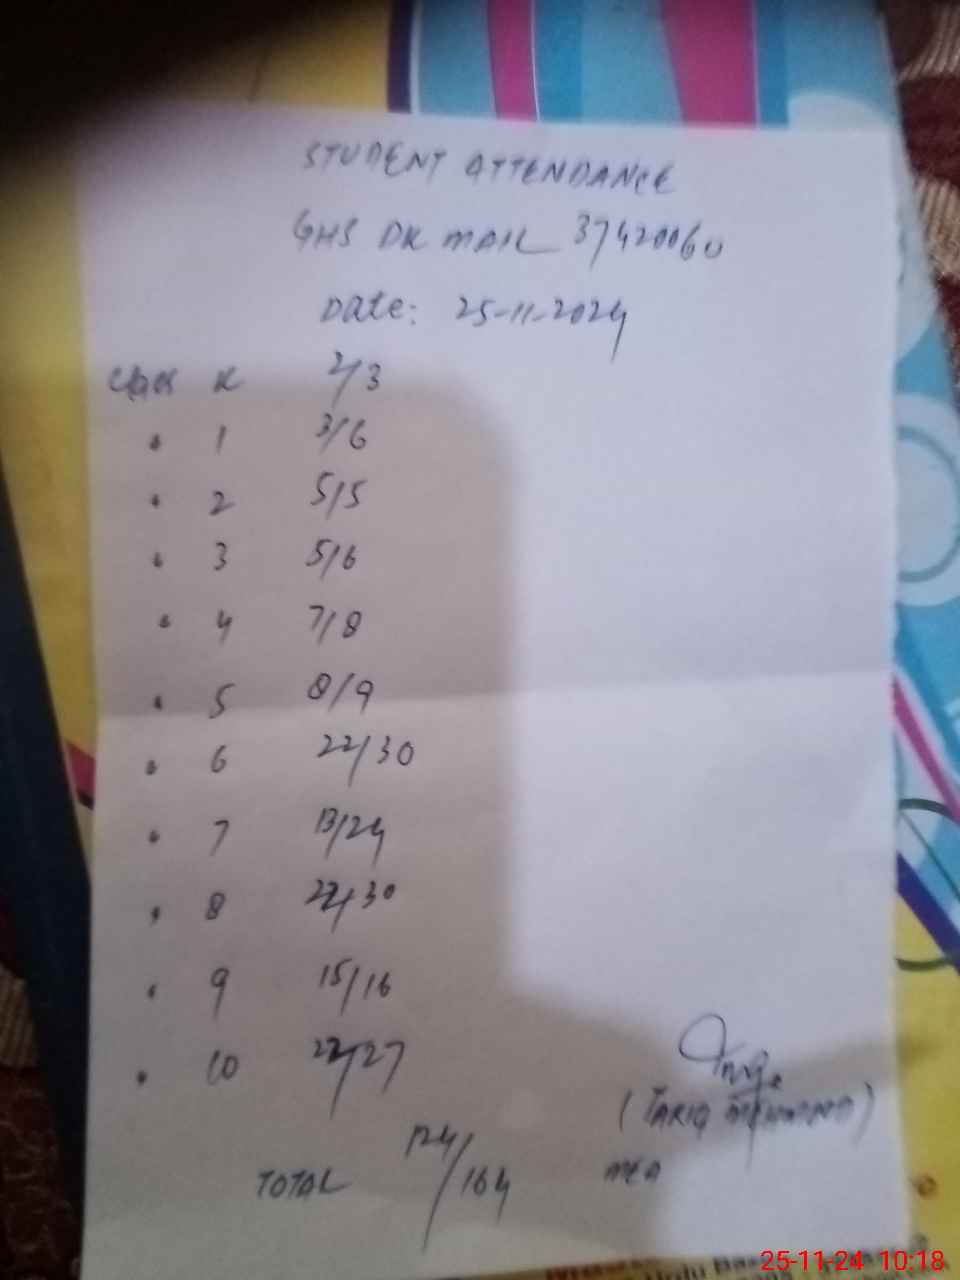 STUDENT ATTENDANCE
GHS DK MAIL 37420060
Date: 25-11-2024
Class K 2/3
" 1 3/6
" 2 5/5
" 3 5/6
" 4 7/8
" 5 8/9
" 6 22/30
" 7 13/24
" 8 22/30
" 9 15/16
" 10 22/27
TOTAL 124/164
(TARIQ MEHMOOD)
MEA
25-11-24 10:18